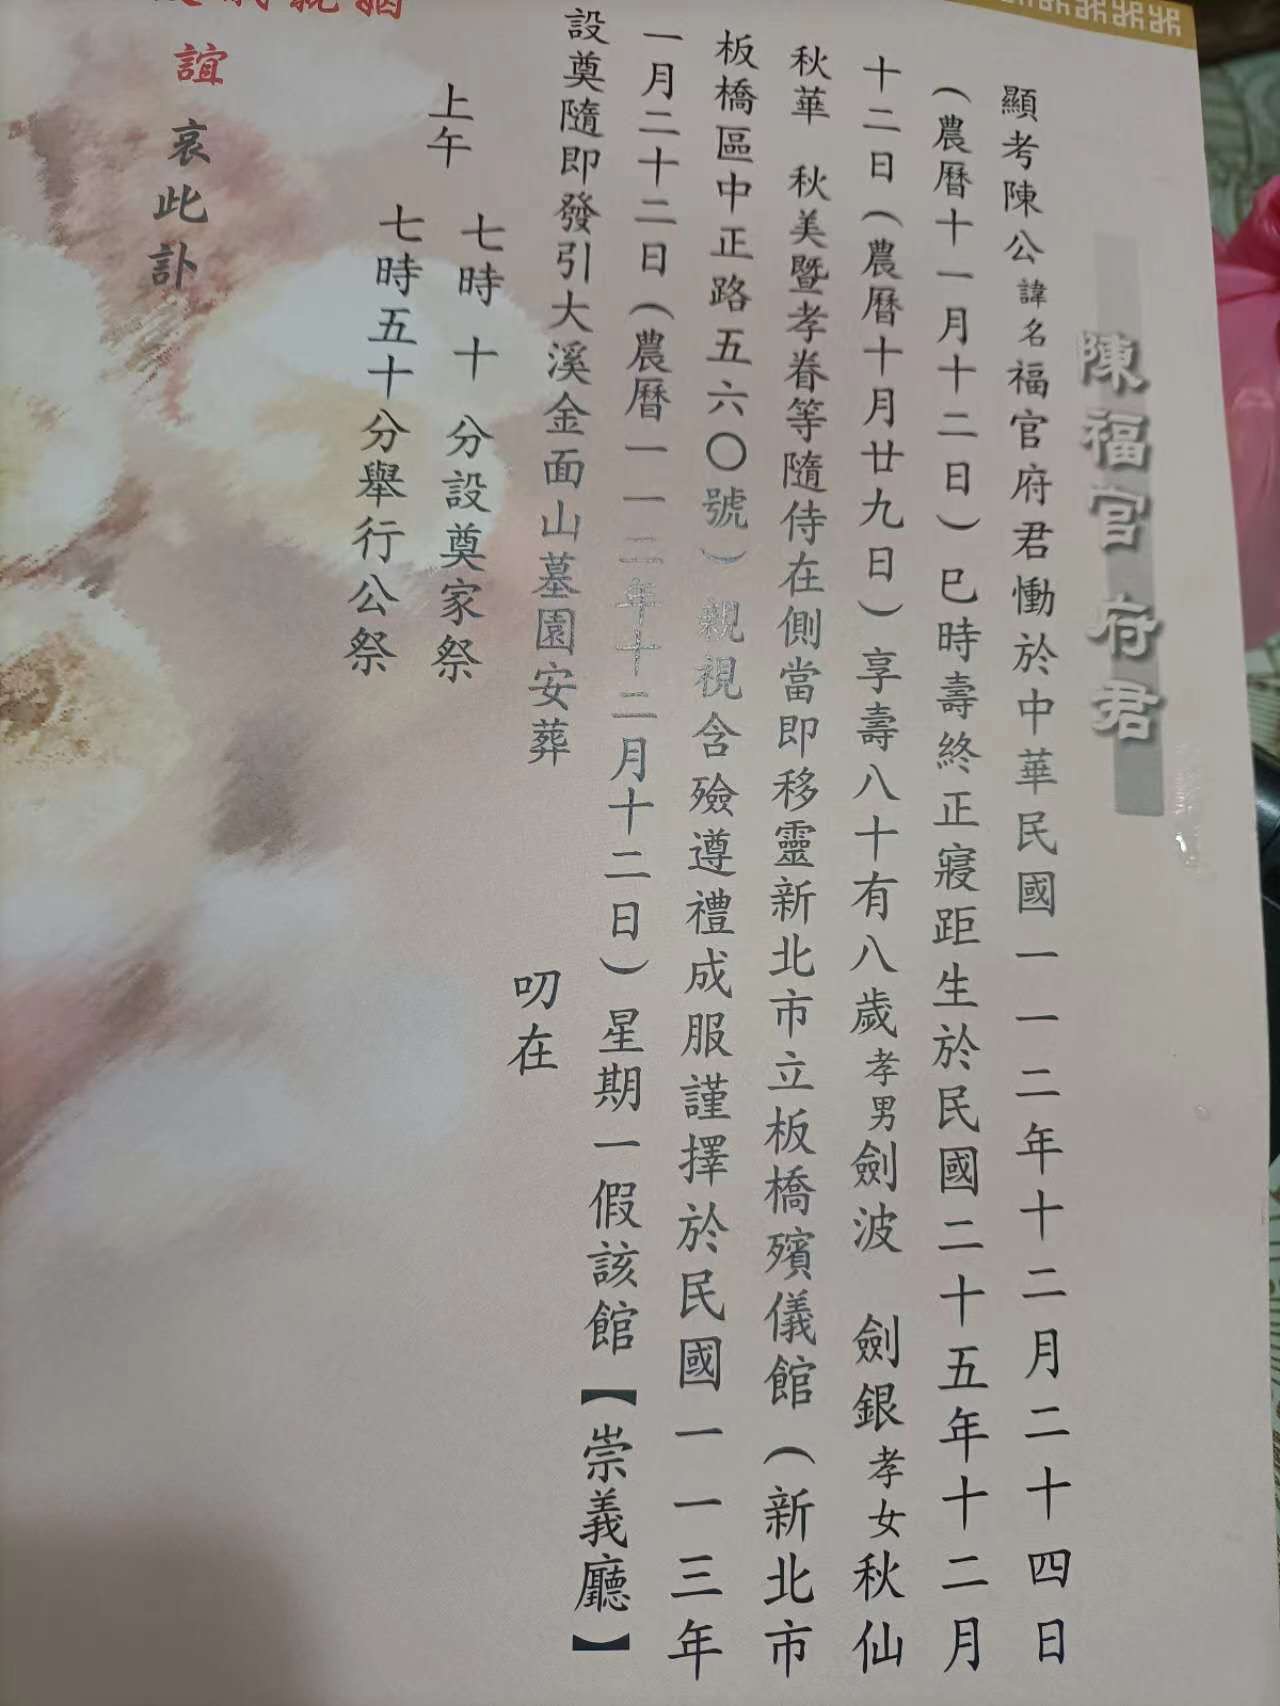 陳福官府君
顯考陳公諱名福官府君慟於中華民國一一二年十二月二十四日
（農曆十一月十二日）巳時壽終正寢距生於民國二十五年十二月
十二日（農曆十月廿九日）享壽八十有八歲孝男劍波　劍銀孝女秋仙
秋華　秋美暨孝眷等隨侍在側當即移靈新北市立板橋殯儀館（新北市
板橋區中正路五六〇號）親視含殮遵禮成服謹擇於民國一一三年
一月二十二日（農曆一一二年十二月十二日）星期一假該館【崇義廳】
設奠隨即發引大溪金面山墓園安葬
叨在
上午
七時十分設奠家祭
七時五十分舉行公祭
姻親
誼
哀此訃